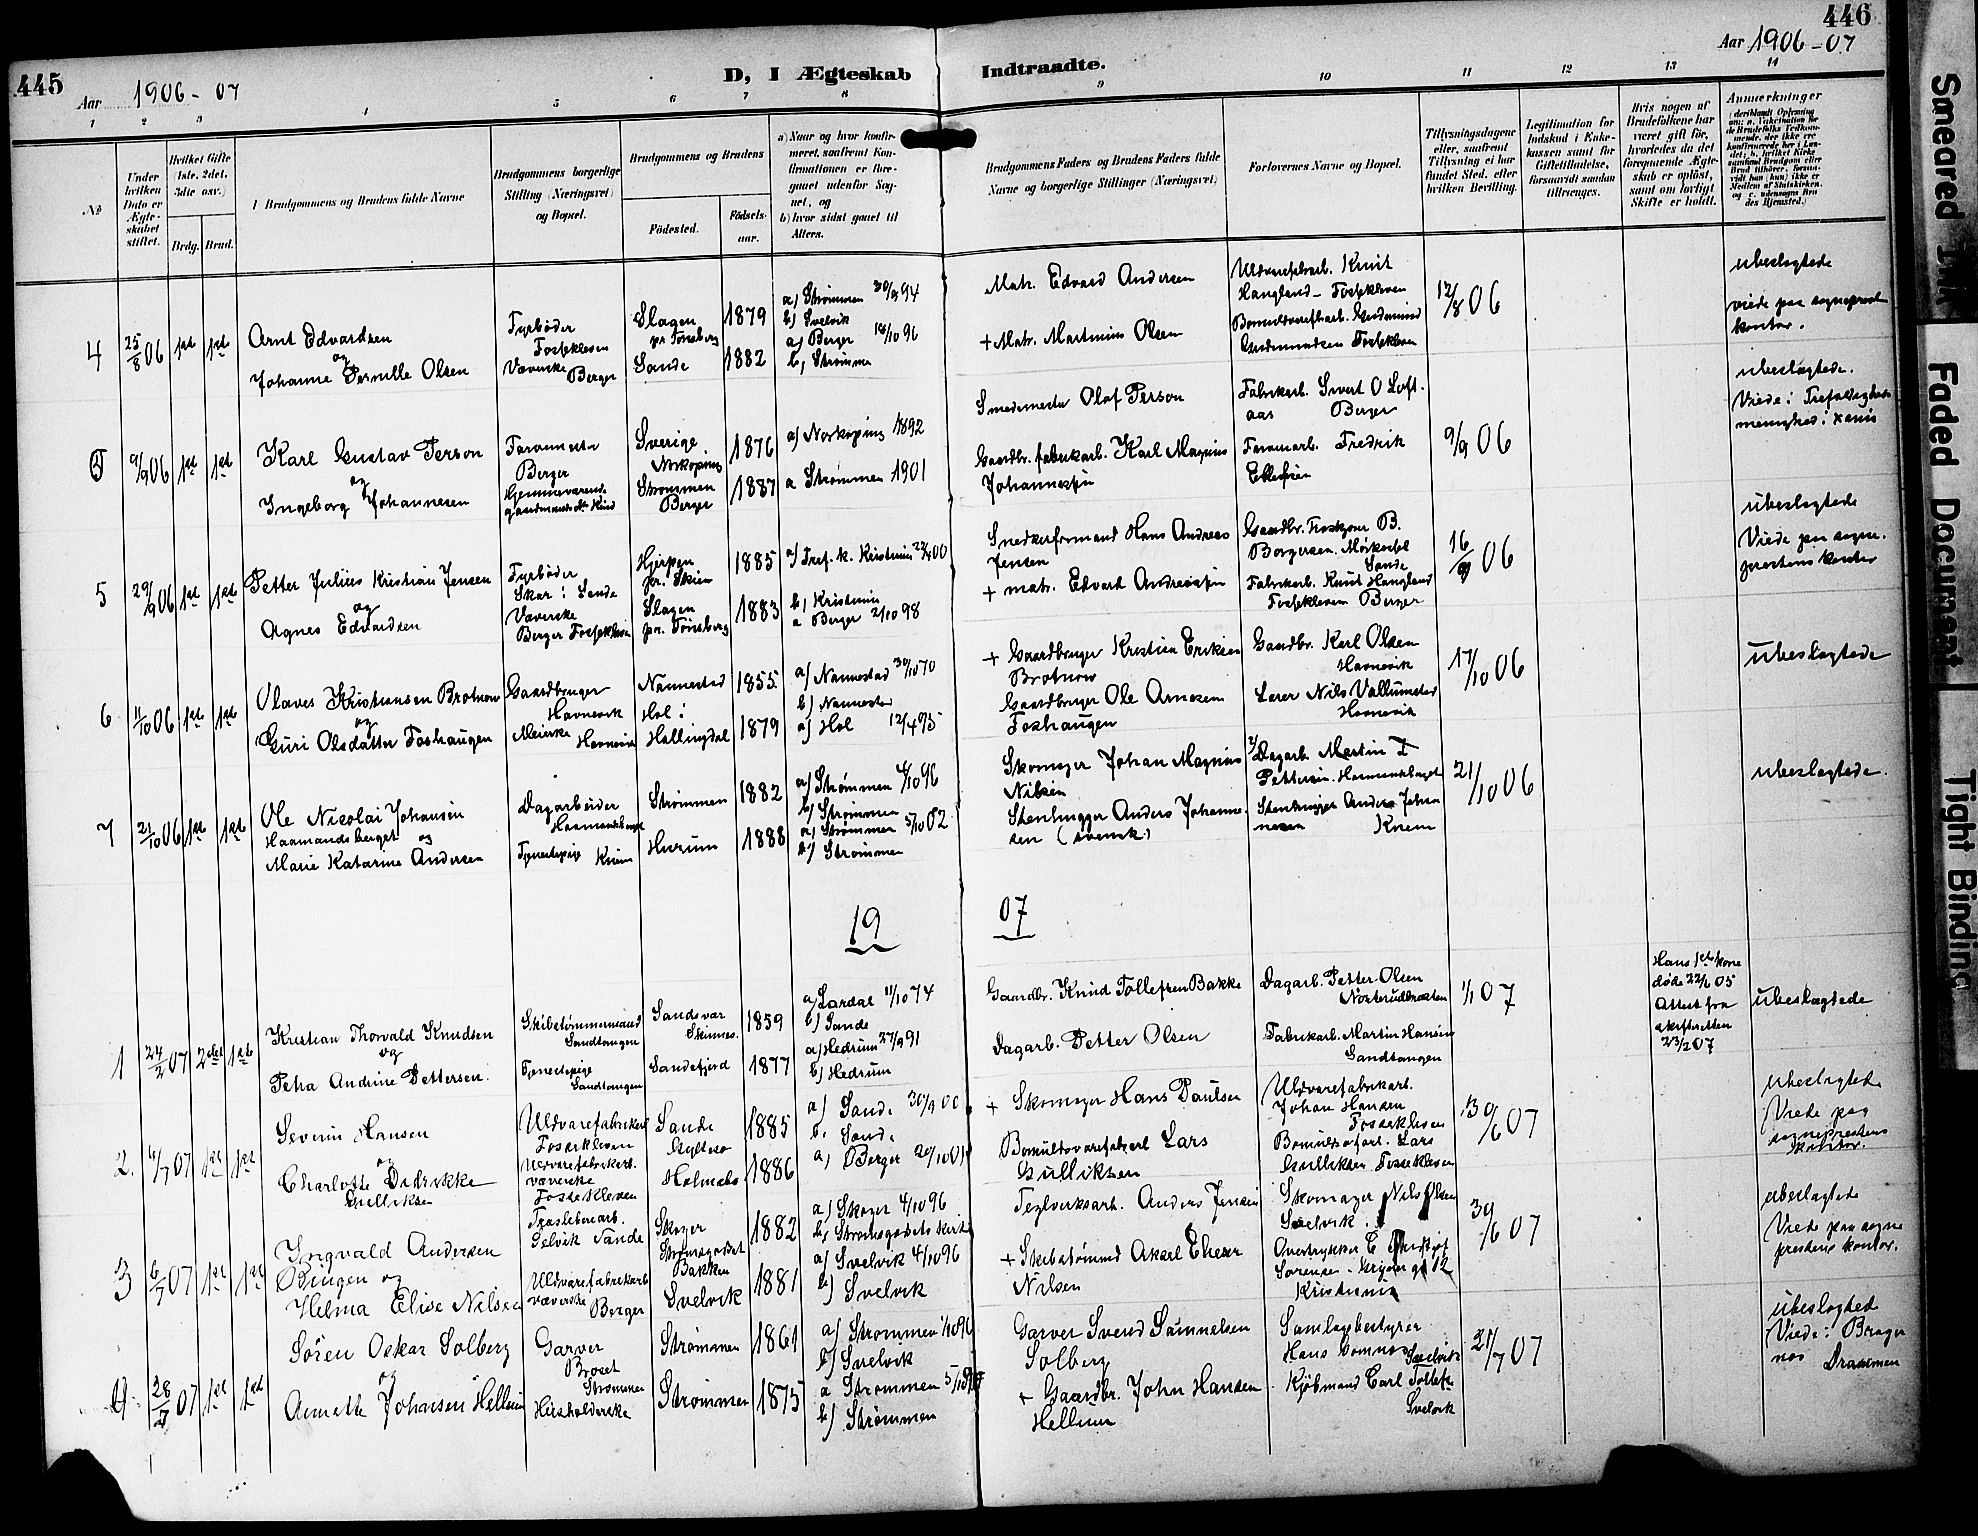 445
Aar 1906-07
D, I Ægteskab Indtraadte.
446
Aar 1906-07
1 2 3 4 5 6 7 8 9 10 11 12 13 14
No
Under hvilken Dato er Ægteskabet stiftet.
Hvilket Gifte (1ste, 2det, 3die osv.)
Brdg. Brud.
Brudgommens og Brudens fulde Navne
Brudgommens borgerlige Stilling (Næringsvei) og Bopæl.
Brudgommens og Brudens
Födested.
Födselsaar.
a) Naar og hvor konfirmeret, saafremt Konfirmationen er foregaaet udenfor Sognet, og
b) hvor sidst gaaet til Alters.
Brudgommens Faders og Brudens Faders fulde Navne og borgerlige Stillinger (Næringsvei)
Forlovernes Navne og Bopæl.
Tillysningsdagene eller, saafremt Tillysning ei har fundet Sted, efter hvilken Bevilling.
Legitimation for Indskud i Enkekassen samt for Giftetilladelse, forsaavidt saadan tiltrænges.
Hvis nogen af Brudefolkene har været gift för, hvorledes da det foregaaende Ægteskab er oplöst, samt om lovligt Skifte er holdt.
Anmerkninger
4 25/8 06 1ste 1ste
Arnt Edvardsen
og
Johanne Pernille Olsen
Fyrbøder
Fossekleven
Væverske
Berger
Slagen
pr Tønsberg
Sande
1879
1882
a) Strømmen 30/9 94
b) Svelvik
a) Berger 18/10 96
b, Strømme
Matr. Edvard Andersen
+ Matr. Martinius Olsen
Uldvarefabrarb. Knut
Hangland - Fossekleven
Bomuldsvarefbarb. Gudmund
Gudmundsen Fossekleven
12/8 06
ubeslægtede
viede paa sogneprest
kontor.
5 9/9 06 1ste 1ste
Karl Gustav Person
og
Ingeborg Johannesen
Farvemester
Berger
Hjemmeværende
gaardmands dtr Knud
Sverige
Norkøping
Strømmen
Berger
1876
1887
a) Norkøping 1892
a Strømmen 1901
Smedemester Olof Person
Gaardbr. fabrikarb. Karl Magnus
Johannessen
Fabrikarb. Sivert O Loft-
aas Berger
Farverarb. Fredrik
Ellefsen
9/9 06
ubeslægtede.
Viede i Trefoldigheds
menighed i Xania
5 29/9 06 1ste 1ste
Petter Julius Kristian Jensen
og
Agnes Edvardsen
Fyrbøder
Skar i Sande
Væverske
Berger Fossekleven
Hjerpen
pr. Skien
Slagen
pr. Tønsberg
1885
1883
a) Tref. k. Kristiania 22/4 00
b, Kristiania
a Berger 2/10 98
Snedkerformand Hans Andreas
Jensen
+ matr. Edvard Andreassen
Gaardbr. Torbjørn B.
Borgersen. Mörkessel
Sande
Fabrikarb. Knut Hangland
Fossekleven Berger
16/9 06
ubeslægtede
Viede paa sogne-
prestens kontor
6 11/10 06 1ste 1ste
Olaves Kristiansen Brotnow
og
Guri Olsdatter Foshaugen
Gaardbruger
Havnevik
Meierske Havnevik
Nannestad
Hol i
Hallingdal
1855
1879
a) Nannestad 30/10 70
b) Nannestad
a) Hol 12/4 95
+ Gaardbruger Kristian Eriksen
Brotnow
Gaardbruger Ole Arnesen
Foshaugen
Gaardbr. Karl Olsen
Havnevik
Lærer Nils Vallumstad
Havnevik
17/10 06
ubeslægtede
7 21/10 06 1ste 1ste
Ole Nicolai Johansen
Haamandsberget og
Marie Katarine Andersen
Dagarbeider
Haamandsberget
Tjenestepige Knem
Strømmen
Hurum
1882
1888
a) Strømmen 4/10 96
b) Strømmen
a) Strømmen 5/10 02
b) Strømmen
Skomager Johan Magnus
Nilsen
Stenhugger Anders Johanne-
sen (svensk)
Dagarb. Martin I
Pettersen. Haamandslaget
Stenhugger Anders Johan
nesen Knem
21/10 06
ubeslægtede.
19 07
1 24/2 07 2det 1ste
Kristian Thorvald Knudsen
og
Petra Andrine Pettersen.
Skibstømmermand
Sandtangen
Tjenestepige
Sandtangen
Sandsvær
Skimnes.
Sandefjord
1859
1877
a) Lardal 11/10 74
b) Sande
a) Hedrum 27/9 91
b) Hedrum
Gaardbr. Knud Tollefsen Bakke
Dagarb. Petter Olsen
Dagarb. Petter Olsen
Norterudbraaten
Fabrikarb. Martin Hansen
Sandtangen
1/1 07
Hans 1ste kone
døde 22/6 05
Attest fra
skifteretten
23/2 07
ubeslægtede
2. 4/7 07 1ste 1ste
Severin Hansen
og
Charlotte Didrikke
Gulliksen
Uldvarefabrikarb
Fossekleven
Uldvarefabrikarb.
væverske
Fossekleven
Sande
Holmsbo
1885
1886
a) Sande 30/9 00
b. Sande
a) Berger 20/10 01
+ Skomager Hans Paulsen
Bomuldsvarefabrarb Lars
Gulliksen
Uldvarefabrikarb.
Johan Hansen
Fossekleven
Bomuldsvarfarb. Lars
Gulliksen Fossekleven
30/6 07
ubeslægtede
Viede paa
sogneprestens
kontor.
3 6/7 07 1ste 1ste
Ingvald Andersen
Bingen og
Helma Elise Nilsen
Træsliberiarb.
Selvik Sande
Uldvarefabrikarb
væverske Berger
Skoger
Strømsgodset
Bakken
Svelvik
1882
1881
a) Skoger 4/10 96
b, Strømsgodsets kirke
a) Svelvik 4/10 96
b) Svelvik
Teglverksarb. Anders Jensen
+ Skibstømmed Aksel Eliezer
Nilsen
Skomager Nils Olsen
Svelvik.
Sørensen
Kristiania
30/6 07
ubeslægtede
Viede paa sogne
prestens kontor.
4 28/7 07 1ste 1ste
Sören Oskar Solberg
og
Annette Johansen Hellum
Garver
Broset
Strømmen
Husholderske
Strømmen
Strømmen
1861
1875
b) Svelvik
a Strømmen
b) Strømmen
Garver Svend Samuelsen
Solberg
+ Gaardbr. John Hansen
Hellum
Samlagsbestyrer
Svelvik
Kjöbmand Carl Tollefs
Svelvik
21/7 07
ubeslægted
Viede i Brager
nes Drammen
Smeared Ink
Faded Document
Tight Binding